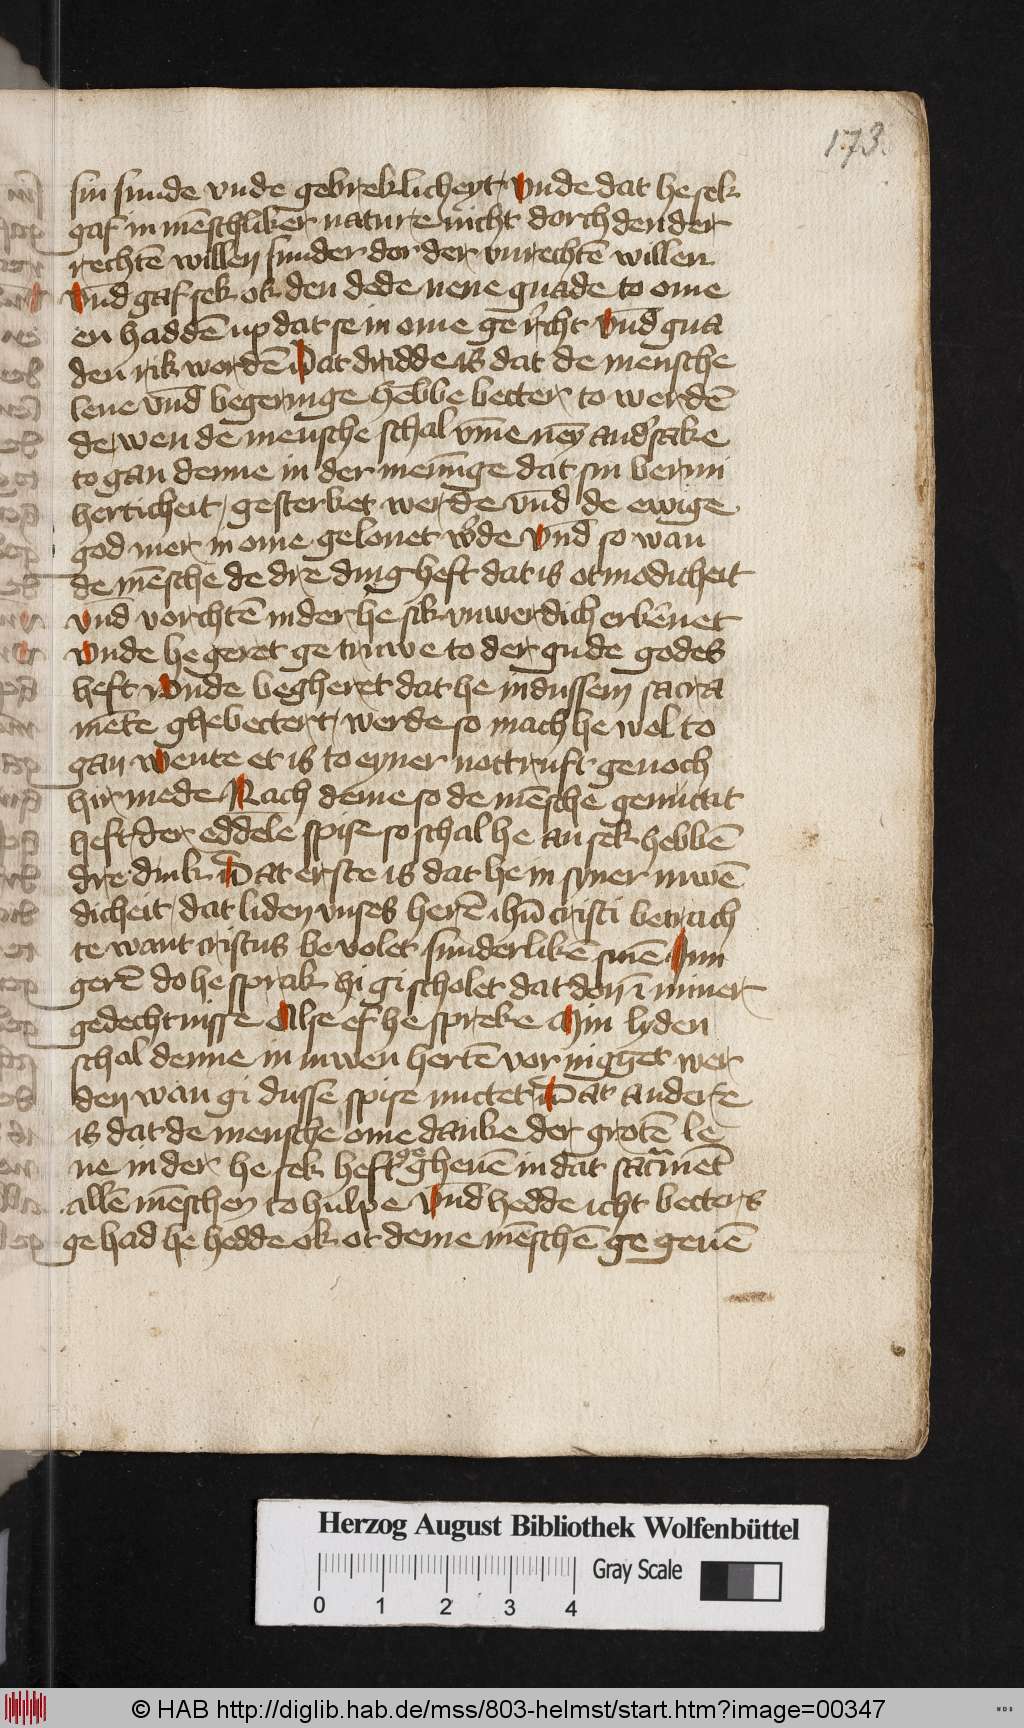 173.
sin sunde vnde gebreklicheyt vnde dat he sek
gaf in mēschliker nature nicht dorch den der
rechtē willen sunder dor der vnrechtē willen
vnd gaf sek ok den dede nene gnade to ome
en haddē up dat se in ome gerͥcht vnd gna
den rik wordē Dat dridde is dat de mensche
leue vnd begeringe hebbe becter to werdē
de wen de mensche schal vm̄e neȳ and's sake
to gan denne in der menīge dat sin barm
herticheit gesterket werde vnd de ewige
god mer in ome gelouet w'de vnd so wan
de mēsche de dre ding heft dat is otmodicheit
vnd vorchtē in der he sik vnwerdich erkēnet
vnde he geret getruwe to der gude godes
heft vnde begheret dat he in dussem sacra
mēte ghebectert werde so mach he wol to
gan wente et is to eyner nottruft genoch
hir mede Nach deme so de mēsche genuttat
heft der eddele spise so schal he an sek hebbē
dre dink Dat erste is dat he in syner inwē
dicheit dat liden vnses herē ihū cristi betrach
te want cristus bevolet sunderlikē sinē iun
gerē do he sprak hi gi scholet dat don ī miner
gedechtnisse Alse ef he spreke Min lyden
schal denne in iuwen hertē vor nigget wer
den wan gi dusse spise nuttet Dat andere
is dat de mensche ome danke der grotē le
ue in der he sek heft ge gheuē in dat sacͣmēt
allē mēschen to hulpe vnd hedde icht becters
ge had he hedde ok ot deme mēschē ge geuē
Herzog August Bibliothek Wolfenbüttel
Gray Scale
0 1 2 3 4
© HAB http://diglib.hab.de/mss/803-helmst/start.htm?image=00347